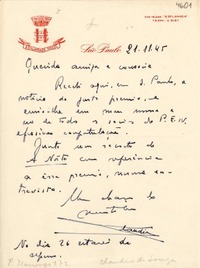 4601
ESPLANADA HOTEL
São Paulo, 21.11.45
Querida amiga e consocia
Recebi aqui, em S. Paulo, a
noticia do justo premio, e
envio-lhe em meu nome e
no de todos os socios do P.E.N.
efusivas congratulações.
Junto um recorte de
A Noite com referencia
a esse premio, numa en-
trevista.
Um abraço do
Claudio
No dia 26 estarei de